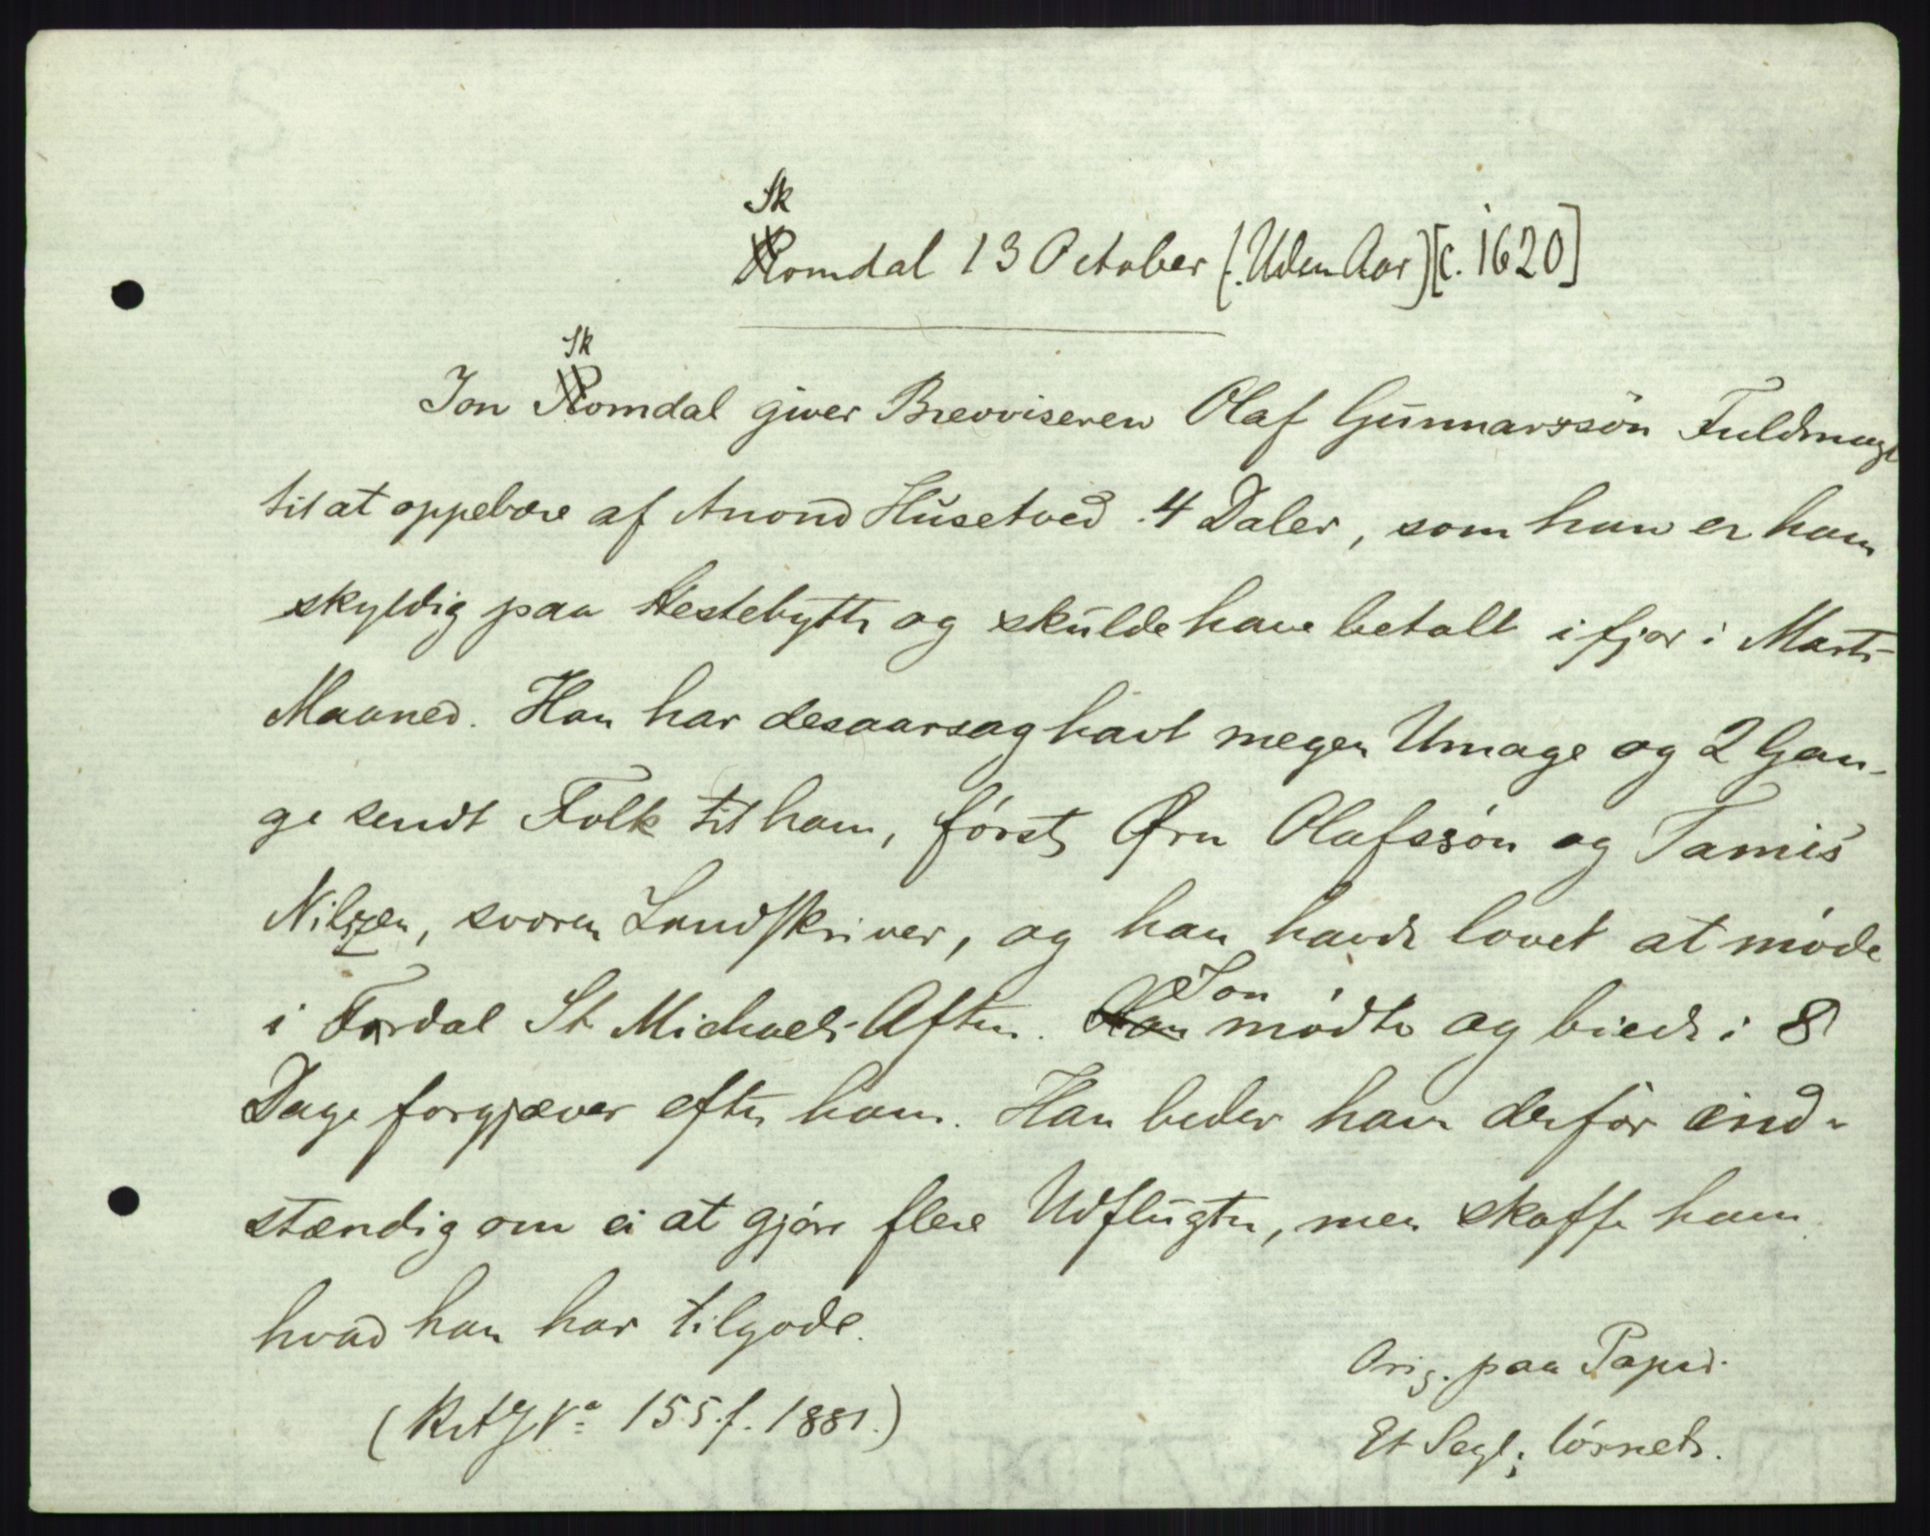 Sk
Romdal 13 October (: Uden Aar) [c. 1620]
Sk
Jon Romdal giver Brevviseren Olaf Gunnarssön Fuldmagt
til at oppebære af Anond Husetved 4 Daler, som han er ham
skyldig paa Hestebytte og skulde have betalt ifjor i Marts
Maaned. Han har desaarsag havt megen Umage og 2 Gan-
ge sendt Folk til ham, først Ørn Olafssøn og Tamis
Nilssen, svoren Landskriver, og han havde lovet at møde
i Fardal St Michaels-Aften. Jon mødte og biede i 8
Dage forgjæver efter ham. Han beder ham derfor ind-
stændig om ei at gjøre flere Udflugter, men skaffe ham
hvad han har tilgode.
Orig. paa Papir.
(RA J No 155. f. 1881.)
Et Segl; løsnet.